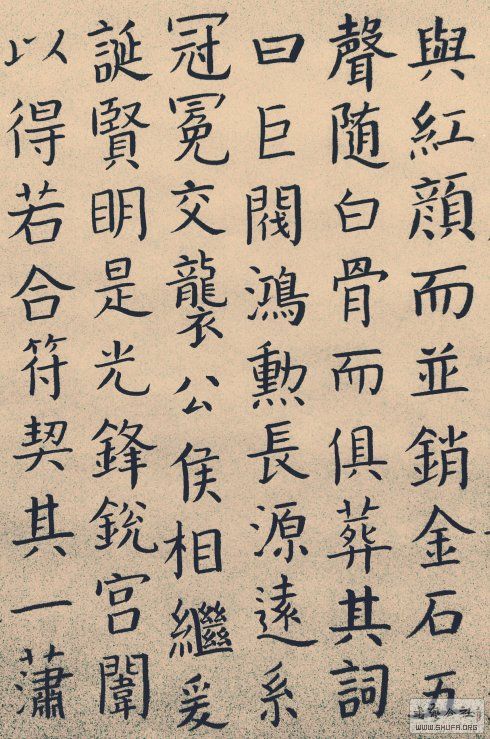 與紅顔而並銷金石五
聲随白骨而俱葬其詞
曰巨閥鴻勲長源遠系
冠冕交襲公侯相繼爰
誕賢眀是光鋒鋭宫闈
以得若合符契其一蕭
WWW.SHUFA.ORG